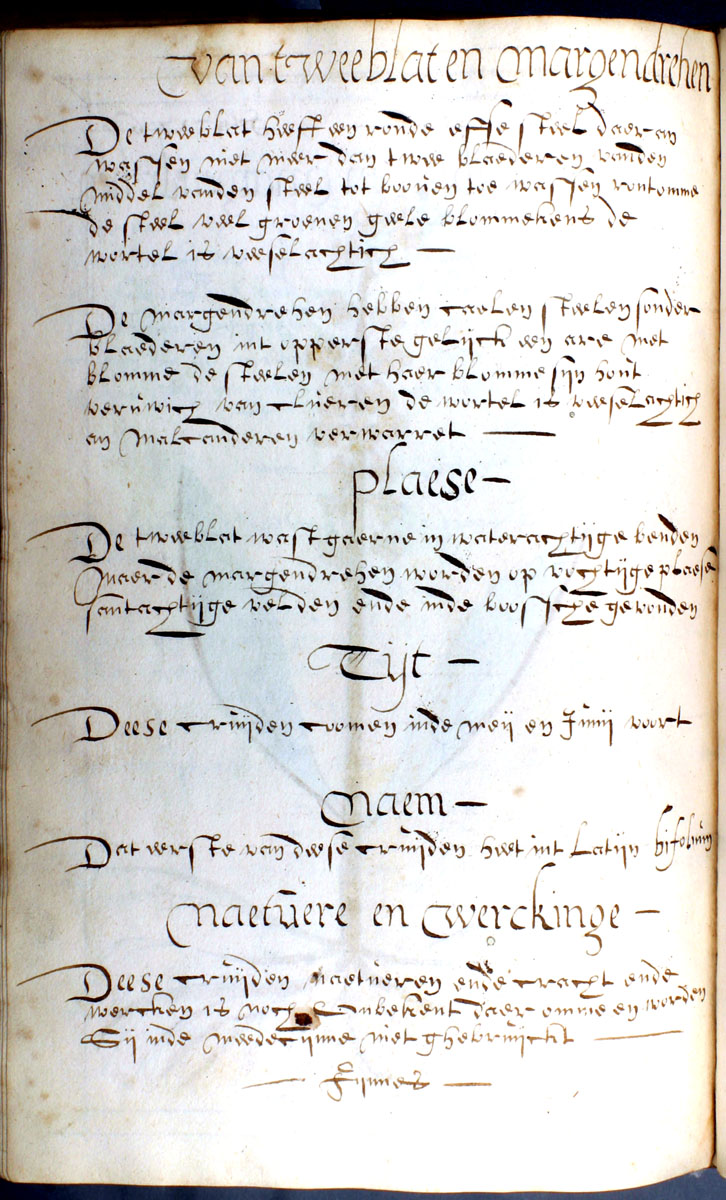 van tweeblat en margendrehen
De tweeblat heeft een ronde effe steel daer an
wassen niet meer dan twee blaederen vanden
middel vanden steel tot booven toe wassen rontomme
de steel veel groenen geele blommekens de
wortel is veeselachtich —
De margendrehen hebben caelen steelen sonder
blaederen int opperste gelijck een are met
blomme de steelen met haer blomme sijn hout
veruwich van clueren de wortel is veeselachtich
an malcanderen verwarret —
plaese —
De tweeblat wast gaerne in waterachtijge benden
maer de margendrehen worden op vochtijge plaese
santachtijge velden ende inde boossche gevonden
Tijt —
Deese cruijden coomen inde meij en Junij voort
Naem —
Dat eerste van deese cruijden heet int Latijn bifolium
Naetuere en werckinge —
Deese cruijden naetueren ende cracht ende
wercken is noch onbekent daer omme en worden
Sij inde meedecijnne niet ghebruickt —
— Fijnnes —